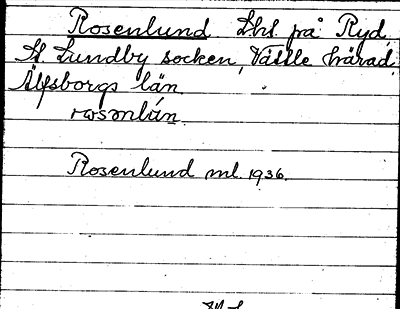 Rosenlund Lht. på Ryd,
St. Lundby socken, Vättle härad,
Älfsborgs län.
Rosenlund ml. 1936.